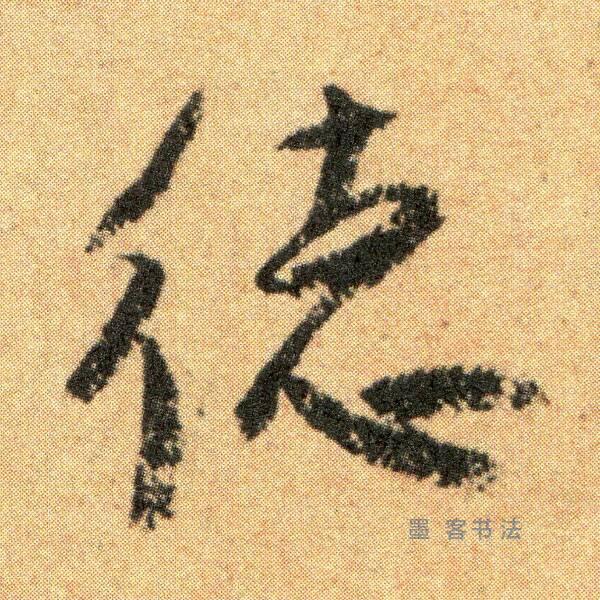 德
墨客书法